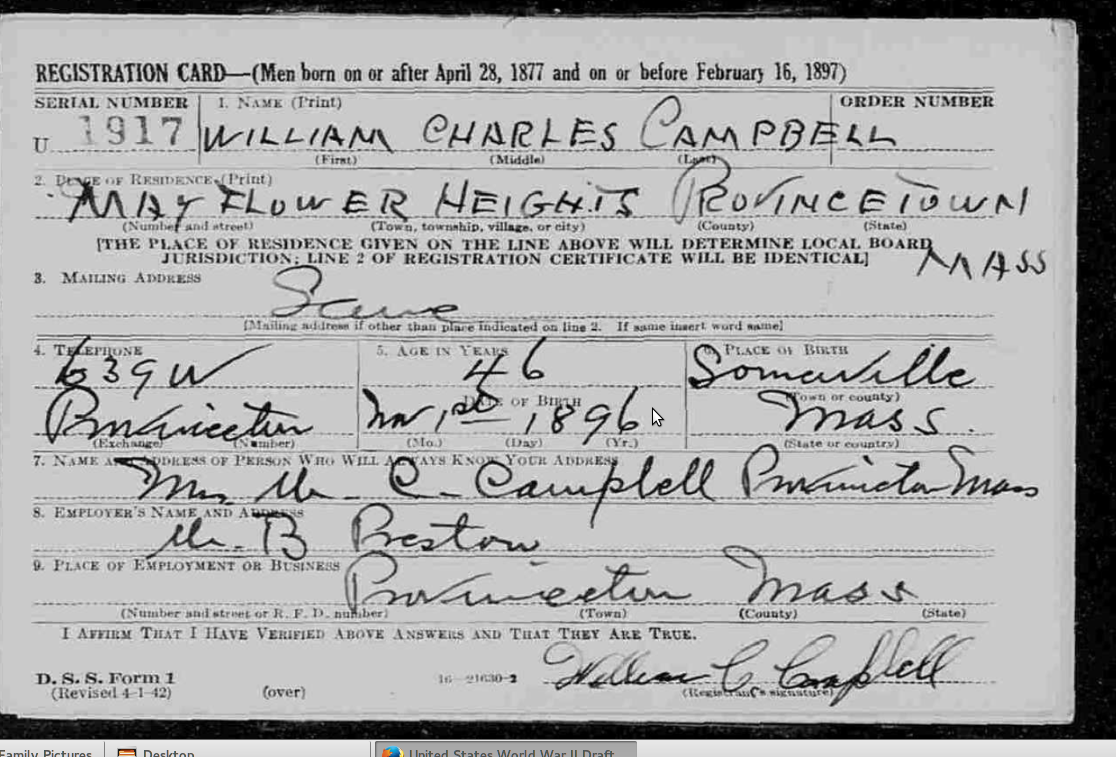 REGISTRATION CARD—(Men born on or after April 28, 1877 and on or before February 16, 1897)
SERIAL NUMBER 1. NAME (Print) ORDER NUMBER
U 1917 WILLIAM CHARLES CAMPBELL
(First) (Middle) (Last)
2. PLACE OF RESIDENCE (Print)
MAYFLOWER HEIGHTS PROVINCETOWN
(Number and street) (Town, township, village, or city) (County) (State)
[THE PLACE OF RESIDENCE GIVEN ON THE LINE ABOVE WILL DETERMINE LOCAL BOARD
JURISDICTION; LINE 2 OF REGISTRATION CERTIFICATE WILL BE IDENTICAL]
MASS
3. MAILING ADDRESS
Same
[Mailing address if other than place indicated on line 2. If same insert word same]
4. TELEPHONE 5. AGE IN YEARS 6. PLACE OF BIRTH
639 W 46 Somerville
DATE OF BIRTH (Town or county)
Provincetown 1st 1896 Mass.
(Exchange) (Number) (Mo.) (Day) (Yr.) (State or country)
7. NAME AND ADDRESS OF PERSON WHO WILL ALWAYS KNOW YOUR ADDRESS
Mrs. C. Campbell Provincetown Mass
8. EMPLOYER'S NAME AND ADDRESS
B Preston
9. PLACE OF EMPLOYMENT OR BUSINESS
Provincetown Mass
(Number and street or R. F. D. number) (Town) (County) (State)
I AFFIRM THAT I HAVE VERIFIED ABOVE ANSWERS AND THAT THEY ARE TRUE.
D. S. S. Form 1
(Revised 4-1-42) (over) 16—21630-2 William C. Campbell
(Registrant's signature)
Family Pictures Desktop United States World War II Draft